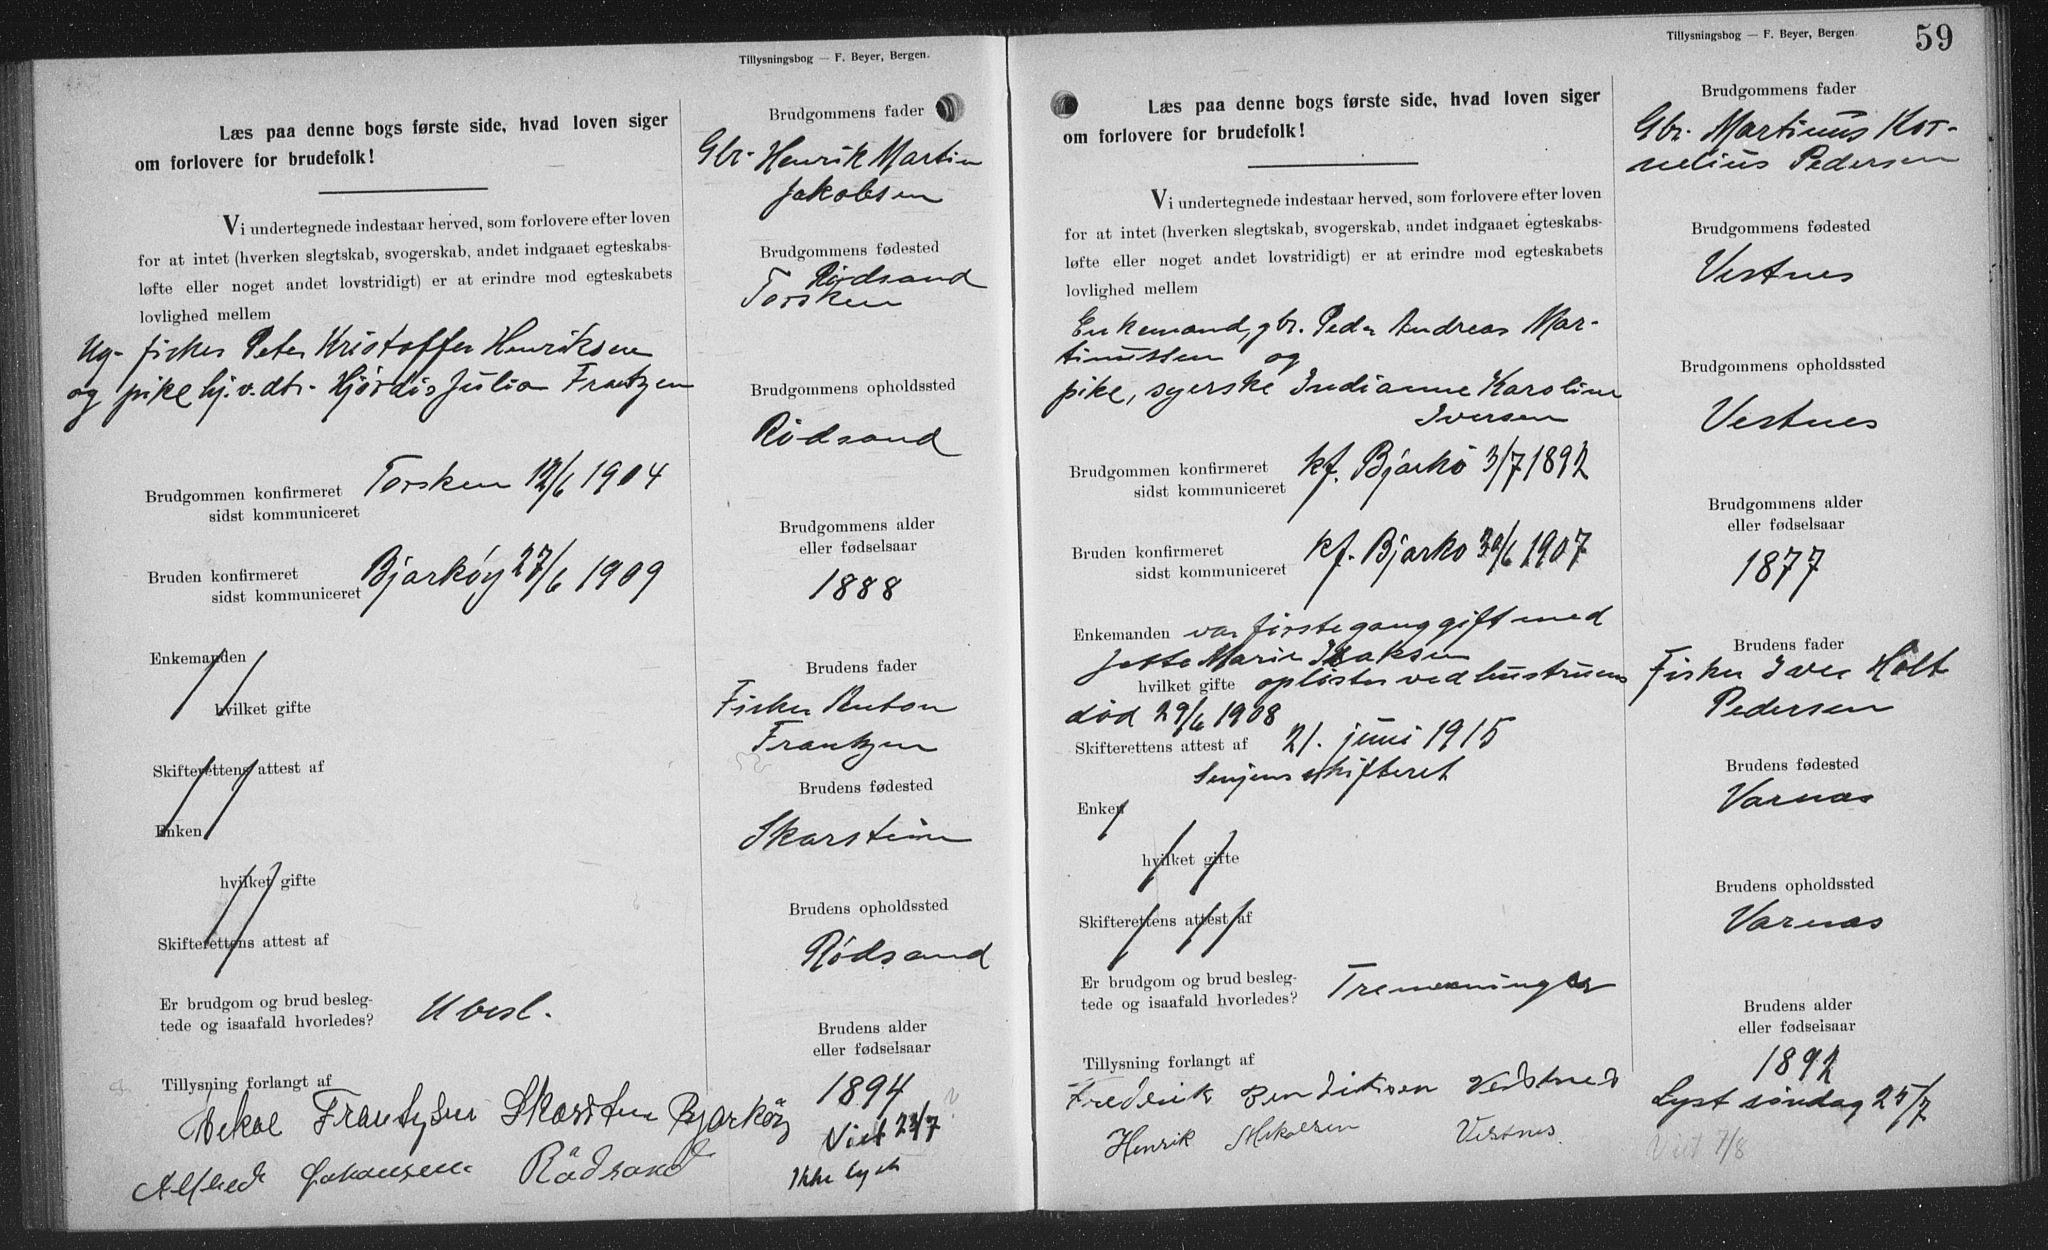 Tillysningsbog — F. Beyer, Bergen.
Læs paa denne bogs første side, hvad loven siger
om forlovere for brudefolk!
Vi undertegnede indestaar herved, som forlovere efter loven
for at intet (hverken slegtskab, svogerskab, andet indgaaet egteskabs-
løfte eller noget andet lovstridigt) er at erindre mod egteskabets
lovlighed mellem
Ug. fisker Peter Kristoffer Henriksen
og pike hj.v.dtr. Hjørdis Julia Frantzen
Brudgommen konfirmeret Torsken 12/6 1904
sidst kommuniceret
Bruden konfirmeret Bjarkøy 27/6 1909
sidst kommuniceret
Enkemanden
hvilket gifte
Skifterettens attest af
Enken
hvilket gifte
Skifterettens attest af
Er brudgom og brud besleg-
tede og isaafald hvorledes? Ubesl.
Tillysning forlangt af
Frantzsen Skarsten Bjarköy
Alfred Johansen Rödsand
Brudgommens fader
Gbr. Henrik Martin
Jakobsen
Brudgommens fødested
Rødsand
Torsken
Brudgommens opholdssted
Rødsand
Brudgommens alder
eller fødselsaar
1888
Brudens fader
Fisker Anton
Frantzen
Brudens fødested
Skarstein
Brudens opholdssted
Rødsand
Brudens alder
eller fødselsaar
1894
Viet 23/7 ?
Ikke lyst
Tillysningsbog — F. Beyer, Bergen.
59
Læs paa denne bogs første side, hvad loven siger
om forlovere for brudefolk!
Vi undertegnede indestaar herved, som forlovere efter loven
for at intet (hverken slegtskab, svogerskab, andet indgaaet egteskabs-
løfte eller noget andet lovstridigt) er at erindre mod egteskabets
lovlighed mellem
Enkemand, gbr. Peder Andreas Mar-
tinussen og
pike, syerske Indianne Karoline
Iversen
Brudgommen konfirmeret kf. Bjarkö 3/7 1892
sidst kommuniceret
Bruden konfirmeret kf. Bjarkö 30/6 1907
sidst kommuniceret
Enkemanden var første gang gift med
Jette Marie Isaksen
hvilket gifte opløstes ved hustruens
död 29/6 1908
Skifterettens attest af 21. juni 1915
Senjens skifteret
Enken
hvilket gifte
Skifterettens attest af
Er brudgom og brud besleg-
tede og isaafald hvorledes? Tremenninger
Tillysning forlangt af
Frederik Bendiksen Vestnes
Henrik Mikalsen Vestnes.
Brudgommens fader
Gbr. Martinus Kor-
nelius Pedersen
Brudgommens fødested
Vestnes
Brudgommens opholdssted
Vestnes
Brudgommens alder
eller fødselsaar
1877
Brudens fader
Fisker Iver Holt
Pedersen
Brudens fødested
Varnæs
Brudens opholdssted
Varnæs
Brudens alder
eller fødselsaar
1892
Lyst søndag 25/7
Viet 7/8